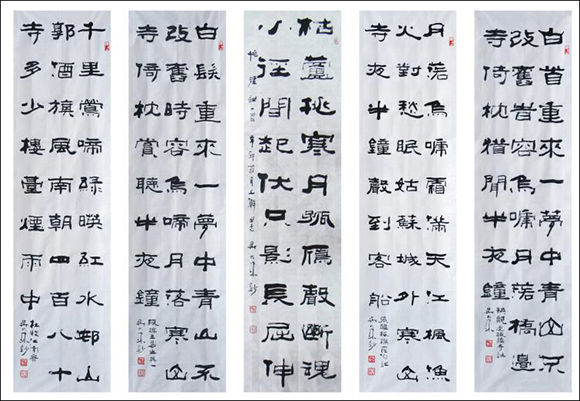 白首重來一夢中青山不
改舊昔容烏啼月落橋邊
寺倚枕猶聞半夜鐘
月落烏啼霜滿天江楓漁
火對愁眠姑蘇城外寒山
寺夜半鐘聲到客船
枯蘆挑寒月孤雁聲斷魂
小徑間起伏只影長屈伸
白髮重來一夢中青山不
改舊時容烏啼月落寒山
寺倚枕嘗聽半夜鐘
千里鶯啼綠映紅水邨山
郭酒旗風南朝四百八十
寺多少樓臺煙雨中
杜牧江南春